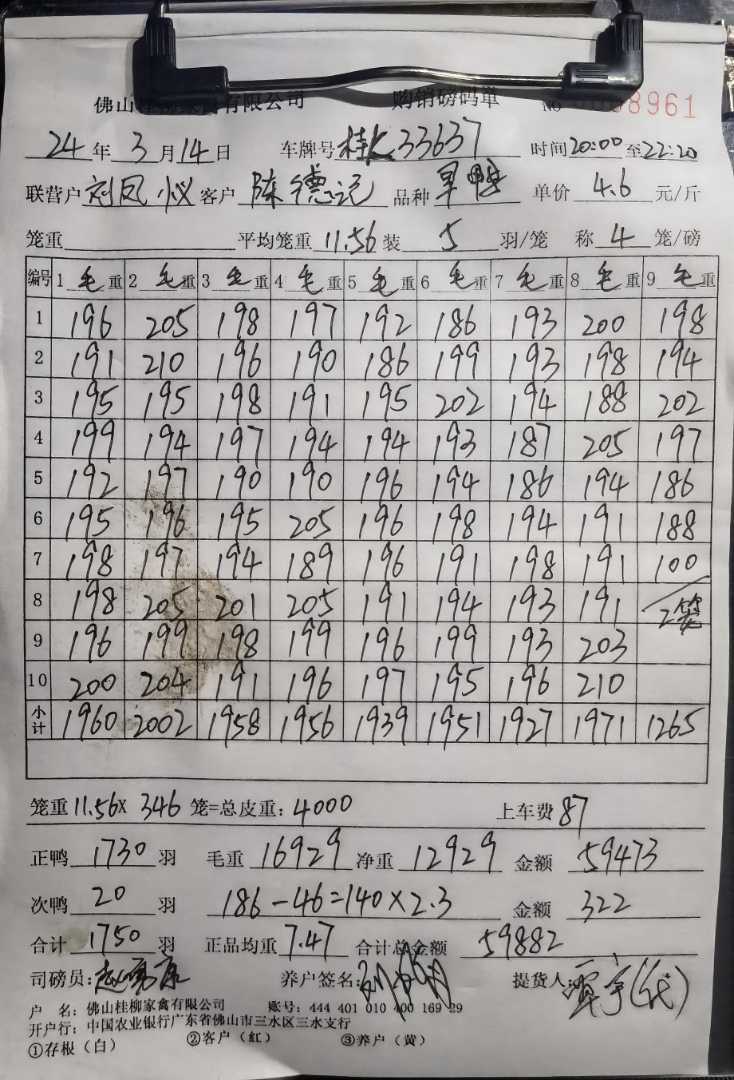 佛山桂柳家禽有限公司 购销磅码单 No 8961
24 年 3 月 14 日 车牌号 桂K33637 时间 20:00 至 22:20
联营户 刘凤仪 客户 陈德记 品种 旱鸭 单价 4.6 元/斤
笼重 平均笼重 11.56 装 5 羽/笼 称 4 笼/磅
编号 1 毛重 2 毛重 3 毛重 4 毛重 5 毛重 6 毛重 7 毛重 8 毛重 9 毛重
1 196 205 198 197 192 186 193 200 198
2 191 210 196 190 186 199 193 198 194
3 195 195 198 191 195 202 194 188 202
4 199 194 197 194 194 193 187 205 197
5 192 197 190 190 196 194 186 194 186
6 195 196 195 205 196 198 194 191 188
7 198 197 194 189 196 191 198 191 100
8 198 205 201 205 191 194 193 191 2笼
9 196 199 198 199 196 199 193 203
10 200 204 191 196 197 195 196 210
小计 1960 2002 1958 1956 1939 1951 1927 1971 1265
笼重 11.56 x 346 笼=总皮重: 4000 上车费 87
正鸭 1730 羽 毛重 16929 净重 12929 金额 59473
次鸭 20 羽 186-46=140×2.3 金额 322
合计 1750 羽 正品均重 7.47 合计总金额 59882
司磅员: 养户签名: 提货人:
户 名: 佛山桂柳家禽有限公司 账号: 444 401 010 400 169 29
开户行: 中国农业银行广东省佛山市三水区三水支行
①存根(白) ②客户(红) ③养户(黄)